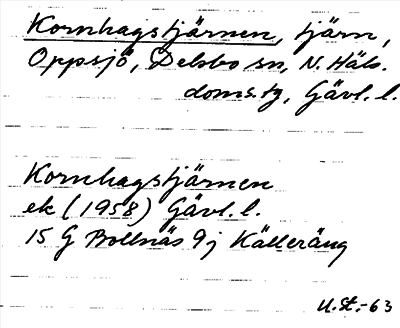 Kornhagstjärnen, tjärn,
Oppsjö, Delsbo sn, N. Häls.
doms.tg, Gävl. l.
Kornhagstjärnen
ek (1958) Gävl. l.
15 G Bollnäs 9j Källeräng
U.St.-63